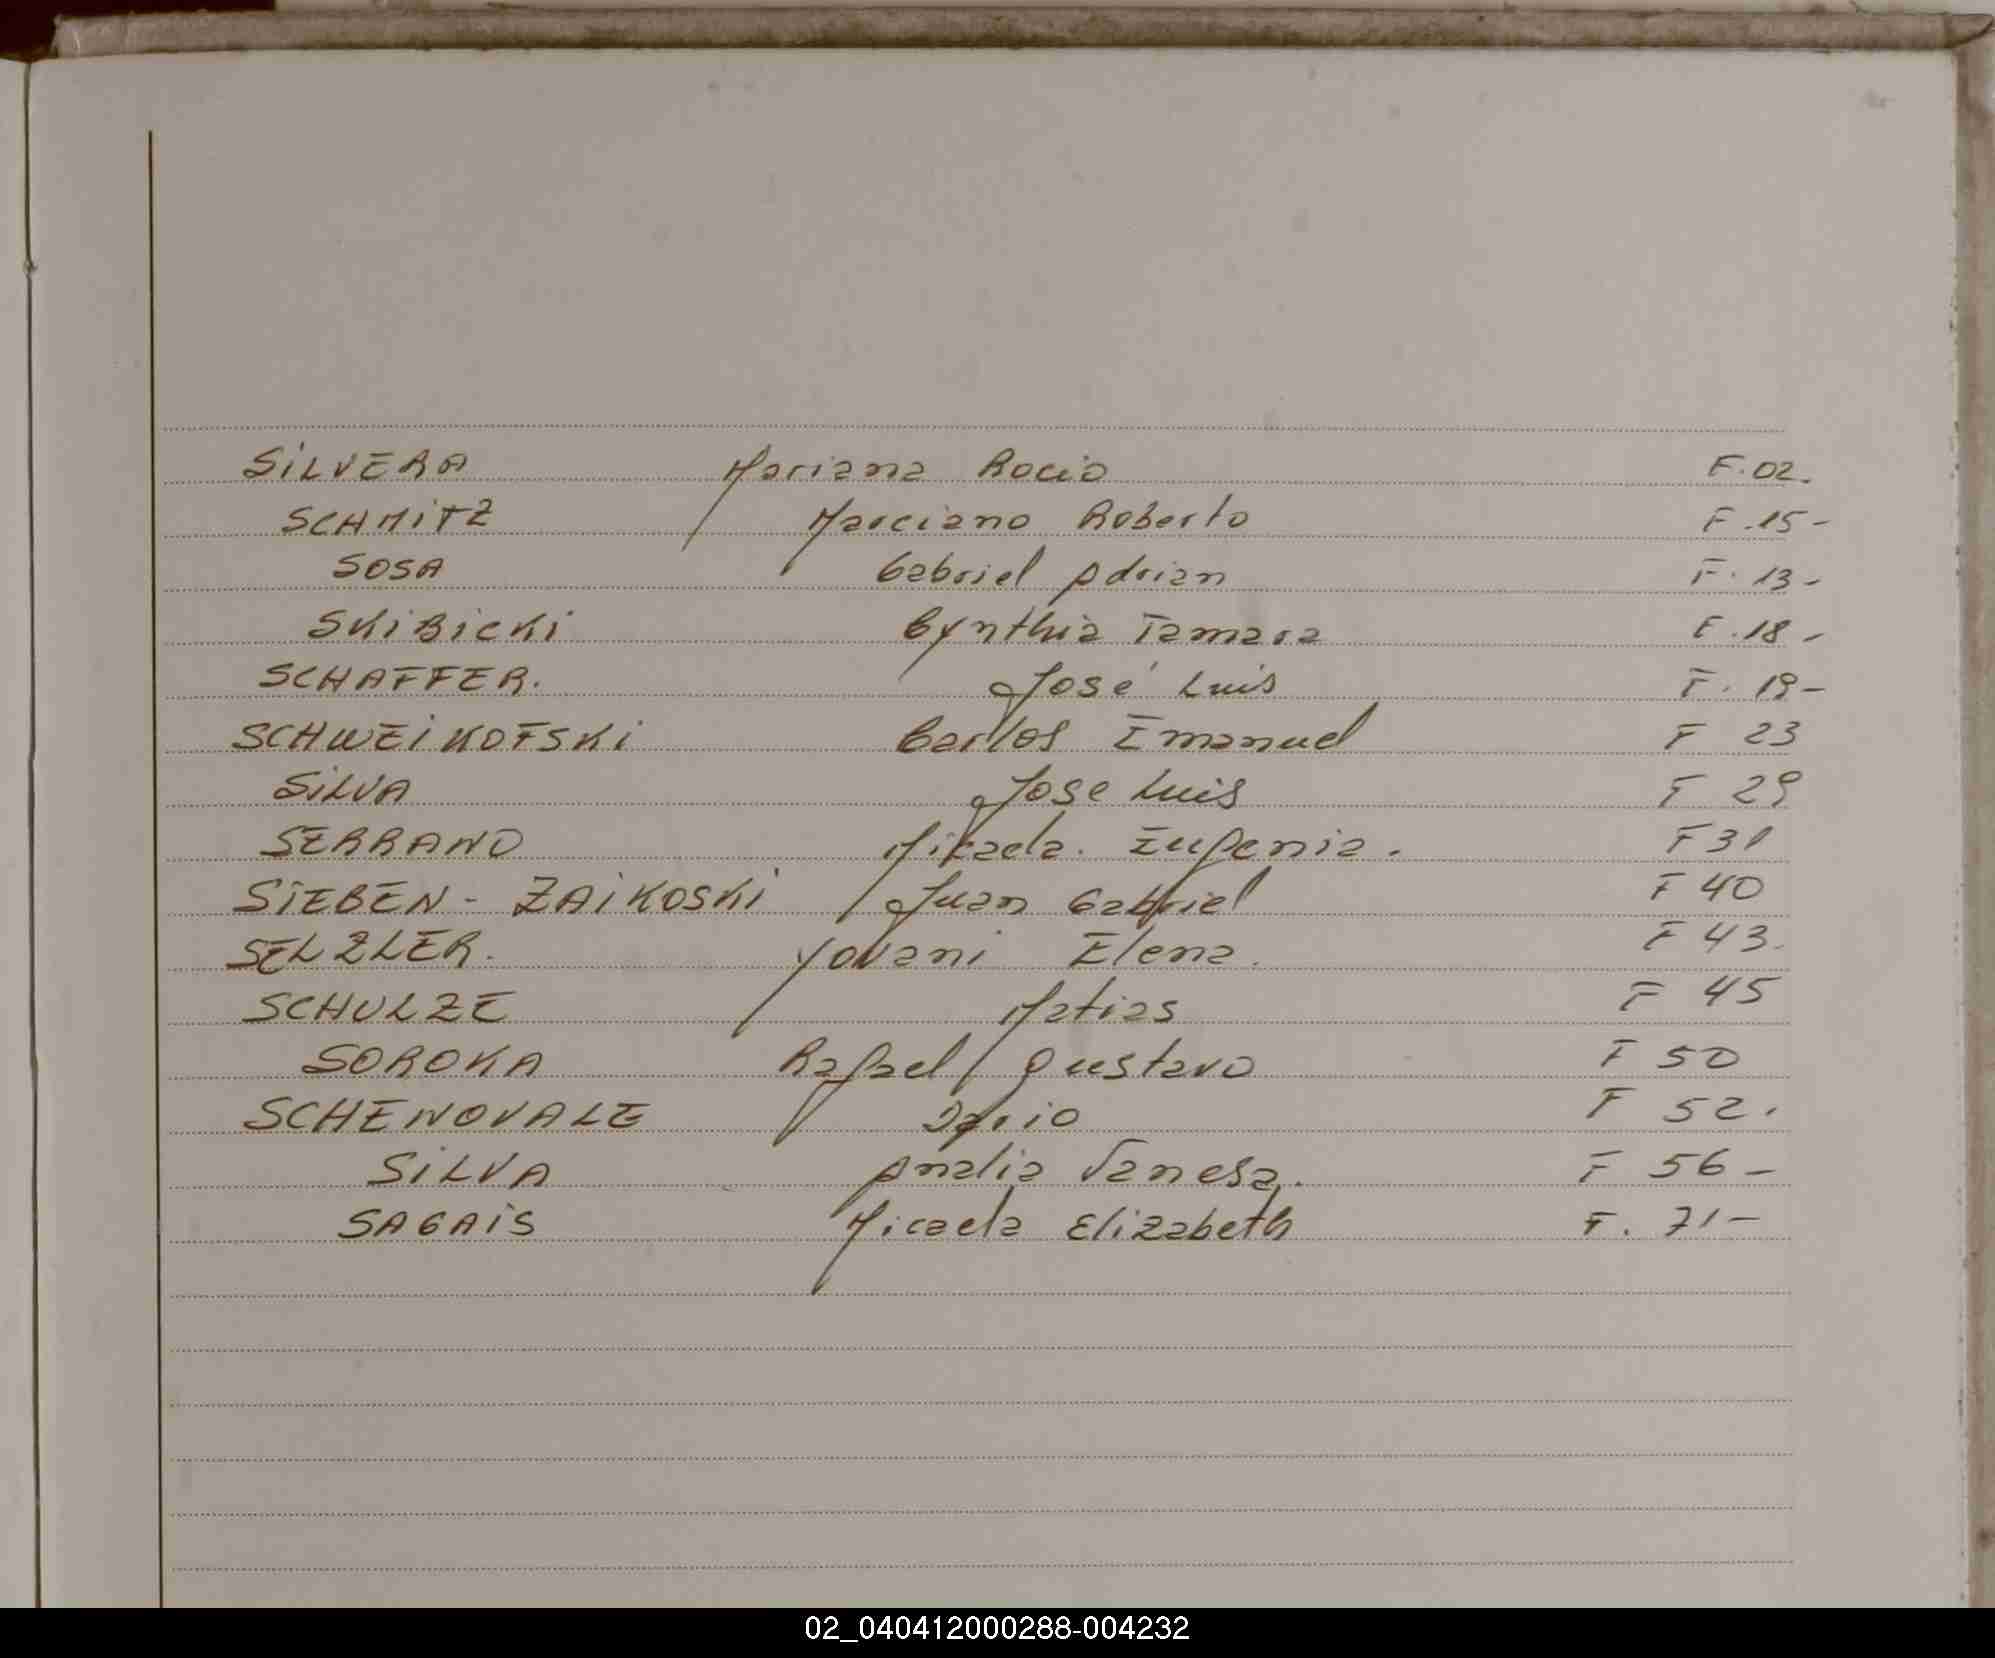 SILVERA Mariana Rocio F. 02.
SCHMITZ Marciano Roberto F. 15-
SOSA Gabriel Adrian F. 13-
SKIBICKI Cynthia Tamara F. 18-
SCHAFFER. José Luis F. 19-
SCHWEIKOFSKI Carlos Emanuel F 23
SILVA Jose Luis F 29
SERRANO Mikaela. Eugenia. F 31
SIEBEN - ZAIKOSKI Juan Gabriel F 40
SELZLER. Yovani Elena. F 43.
SCHULZE Matias F 45
SOROKA Rafael Gustavo F 50
SCHENOVALE Dario F 52.
SILVA Analia Vanesa. F 56-
SAGAIS Micaela Elizabeth F. 71-
02_040412000288-004232